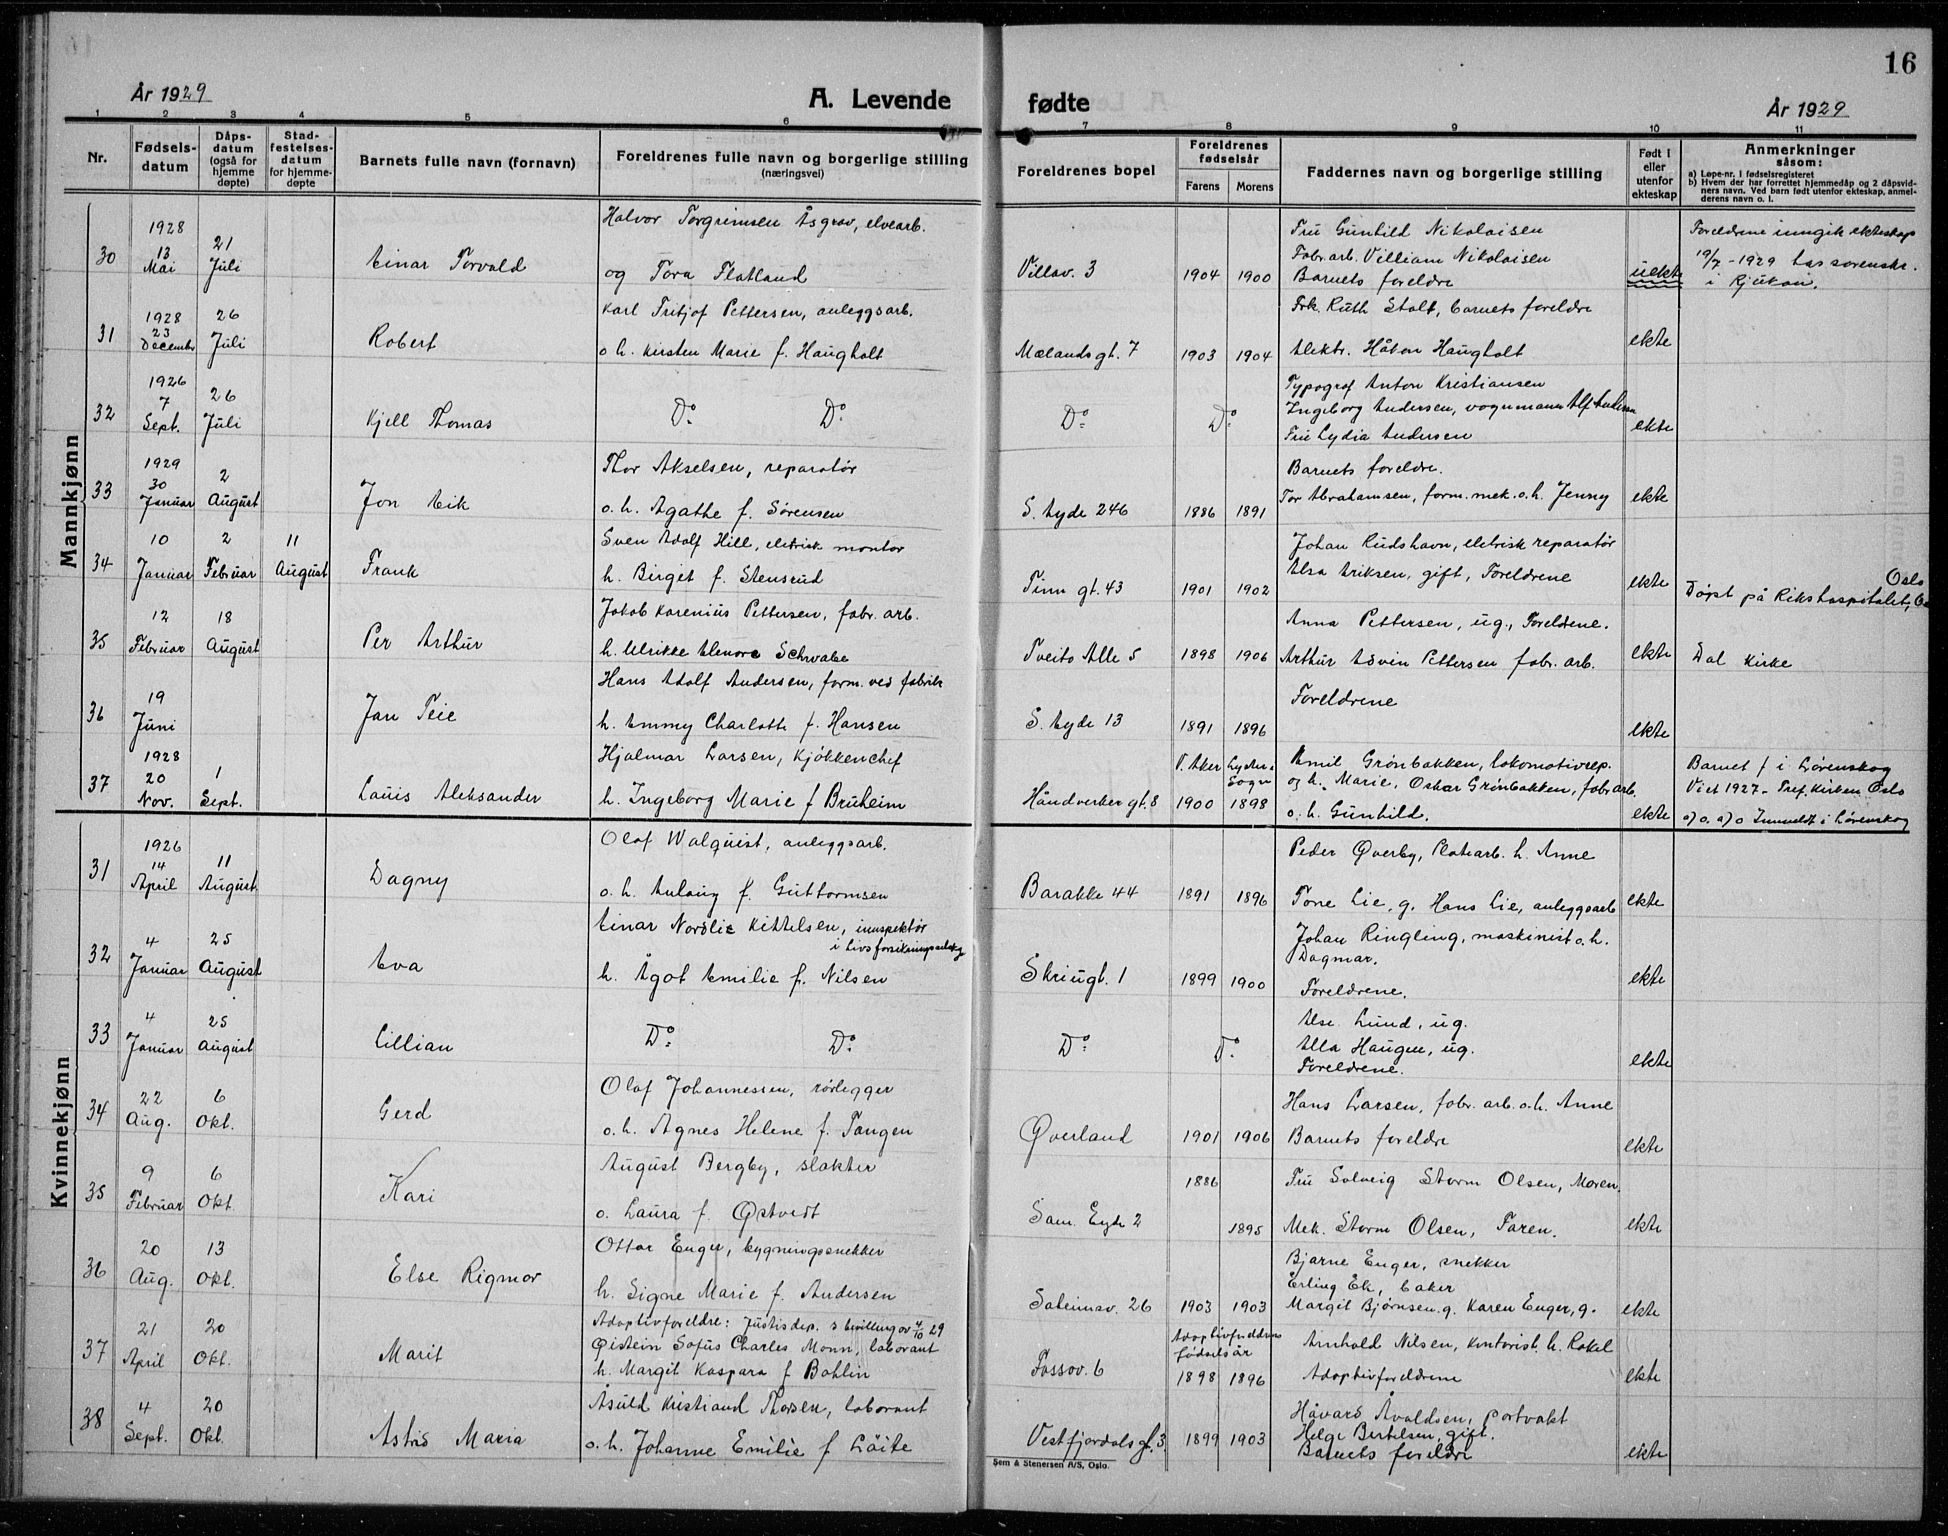 16
År 1929
A. Levende
fødte
År 1929
1 2 3 4 5 6 7 8 9 10 11
Nr.
Fødsels-
datum
Dåps-
datum
(også for
hjemme
døpte)
Stad-
festelses-
datum
for hjemme-
døpte
Barnets fulle navn (fornavn)
Foreldrenes fulle navn og borgerlige stilling
(næringsvei)
Foreldrenes bopel
Foreldrenes
fødselsår
Farens Morens
Faddernes navn og borgerlige stilling
Født i
eller
utenfor
ekteskap
Anmerkninger
såsom:
a) Løpe-nr. i fødselsregisteret
b) Hvem der har forrettet hjemmedåp og 2 dåpsvid-
ners navn. Ved barn født utenfor ekteskap, anmel-
derens navn o. l.
Mannkjønn
30
1928
13
Mai
21
Juli
Einar Torvald
Halvor Torgrimsen Åsgrav, elvearb.
og Tora Flatland
Villav. 3
1904 1900
Fru Gunhild Nikolaisen
Fabr. arb. Villiam Nikolaisen
Barnets foreldre
uekte
Foreldrene inngik ekteskap
19/7 - 1929 hos sorenskr.
i Rjukan.
31
1928
23
Decembr
26
Juli
Robert
Karl Fritjof Pettersen, anleggsarb.
o h. Kirsten Marie f. Haugholt
Mælandsgt. 7
1903 1904
Frk. Ruth Stolt, barnets foreldre
Elektr. Håkon Haugholt
ekte
32
1926
7
Sept.
26
Juli
Kjell Thomas
Do Do
Do
Do
Typograf Anton Kristiansen
Ingeborg Andersen, vognmann Alf Andersen
Fru Lydia Andersen
ekte
33
1929
30
Januar
2
August
Jon Eik
Thor Akselsen, reparatør
o. h. Agathe f. Sørensen
S. Eyde 246
1886 1891
Barnets foreldre.
Tor Abrahamsen, form. mek. o. h. Jenny
ekte
34
10
Januar
2
Februar
11
August
Frank
Sven Adolf Hill, eletrisk montør
h. Birget f. Stensrud
Tinn gt. 43
1901 1902
Johan Rudshavn, eletrisk reparatør
Elsa Eriksen, gift, Foreldrene
ekte
Døpt på Rikshospitalet, Oslo
35
12
Februar
18
August
Per Arthur
Jakob Karenius Pettersen, fabr. arb.
h. Ulrikke Elenore Schwabe
Tveito Alle 5
1898 1906
Anna Pettersen, ug., Foreldrene.
Arthur Edvin Pettersen fabr. arb.
ekte
Dal Kirke
36
19
Juni
Jan Teie
Hans Adolf Andersen, form. ved fabrik
h. Emmy Charlotte f. Hansen
S. Eyde 13
1891 1896
Foreldrene
ekte
37
1928
20
Nov.
1
Sept.
Lauis Aleksander
Hjalmar Larsen, Kjøkkenchef
h. Ingeborg Marie f Bruheim
Håndverker gt. 8
V. Aker
1900 1898
Emil Grønbakken, lokomotivrep.
og h. Marie, Oskar Grønbakken, fabr arb.
o. h. Gunhild.
ekte
Barnet f i Lørenskog
Viet 1927 - Tref. Kirken Oslo
Innmeldt i Lørenskog
Kvinnekjønn
31
1926
14
April
11
August
Dagny
Olaf Walquist, anleggsarb.
o. h. Aulaug f. Guttormsen
Barakke 44
1891 1896
Peder Øverby, Platearb. h. Anne
Tone Lie, g. Hans Lie, anleggsarb
ekte
32
4
Januar
25
August
Eva
Einar Nordlie Kittelsen, innspektør
i Livsforsikringsselskp
h. Ågot Emilie f. Nilsen
Skriugt. 1
1899 1900
Johan Ringling, maskinist o. h.
Dagmar.
Foreldrene.
ekte
33
4
Januar
25
August
Lillian
Do Do
Do
Do
Else Lund, ug.
Ella Haugen, ug.
Foreldrene.
ekte
34
22
Aug.
6
Okt.
Gerd
Olaf Johannessen, rørlegger
o. h. Agnes Helene f. Tangen
Øverland
1901 1906
Hans Larsen, fabr. arb. o. h. Anne
Barnets foreldre
ekte
35
9
Februar
6
Okt.
Kari
August Bergby, slakter
o. Laura f. Østvedt
Sam. Eyde 2
1886
1895
Fru Solveig Storm Olsen, Moren.
Mek. Storm Olsen, Faren.
ekte
36
20
Aug.
13
Okt.
Else Rigmor
Ottar Enger, bygningssnekker
h. Signe Marie f. Andersen
Såheimsv. 26
1903 1903
Bjarne Enger, snekker
Erling Ek, baker
Margit Bjørnsen. g. Karen Enger, g.
ekte
37
21
April
20
Okt.
Marit
Adoptivforeldre: Justisdep. s bevilling av 4/10 29
Øistein Sofus Charles Monn, laborant
h. Margit Kaspara f Bohlin
Fossov. 6
fødselsår
1898 1896
Arnhold Nilsen, kontorist, h. Rakel
Adoptivforeldrene
ekte
38
4
Sept.
20
Okt.
Astrid Maria
Åsuld Kristiand Thorsen, laborant
o. h. Johanne Emilie f Løite
Vestfjordals gt. 3
1899 1903
Håvard Åvaldsen, portvakt
Helge Bertelsen, gift.
Barnets foreldre
ekte
Sem & Stenersen A/S, Oslo.